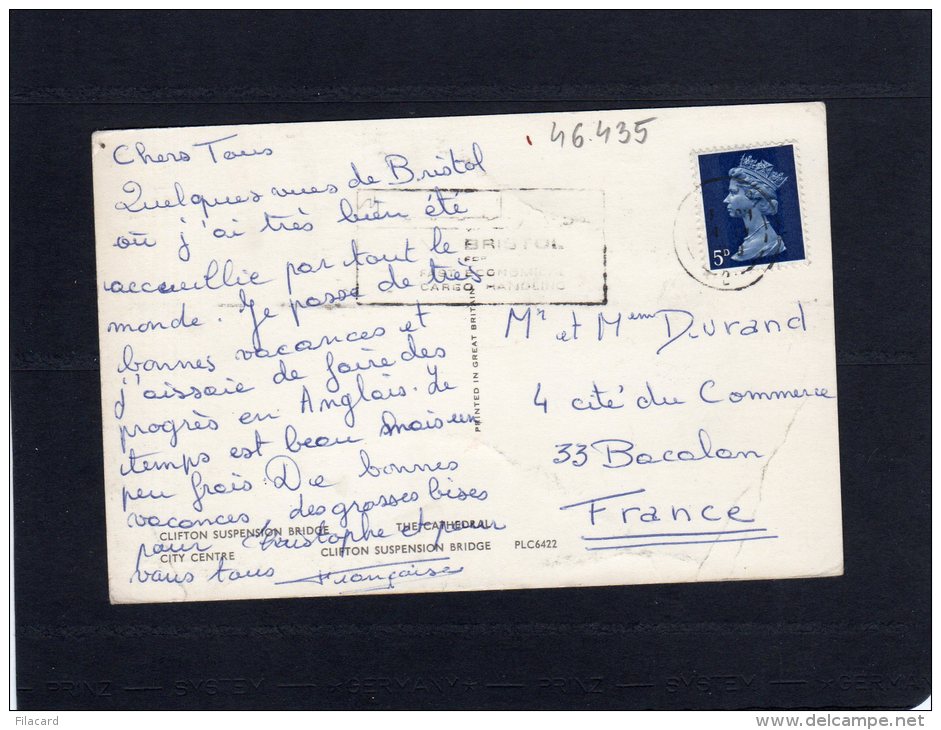 46.435
Chers Tous
Quelques vues de Bristol
où j'ai très bien été
accueillie par tout le
monde. Je passe de très
bonnes vacances et
j'aissaie de faire des
progrès en Anglais. Le
temps est beau mais un
peu frais. De bonnes
vacances des grosses bises
pour Christophe et pour
vous tous Françoise
BRISTOL
FOR
FAST ECONOMICAL
CARGO HANDLING
5D
PRINTED IN GREAT BRITAIN
Mr et Mem Durand
4 cité du Commerce
33 Bacalan
France
CLIFTON SUSPENSION BRIDGE THE CATHEDRAL
CITY CENTRE CLIFTON SUSPENSION BRIDGE PLC6422
PRINZ — SYSTEM — *GERMANY* — PRINZ — SYSTEM — *GERMAN
Filacard
www.delcampe.net